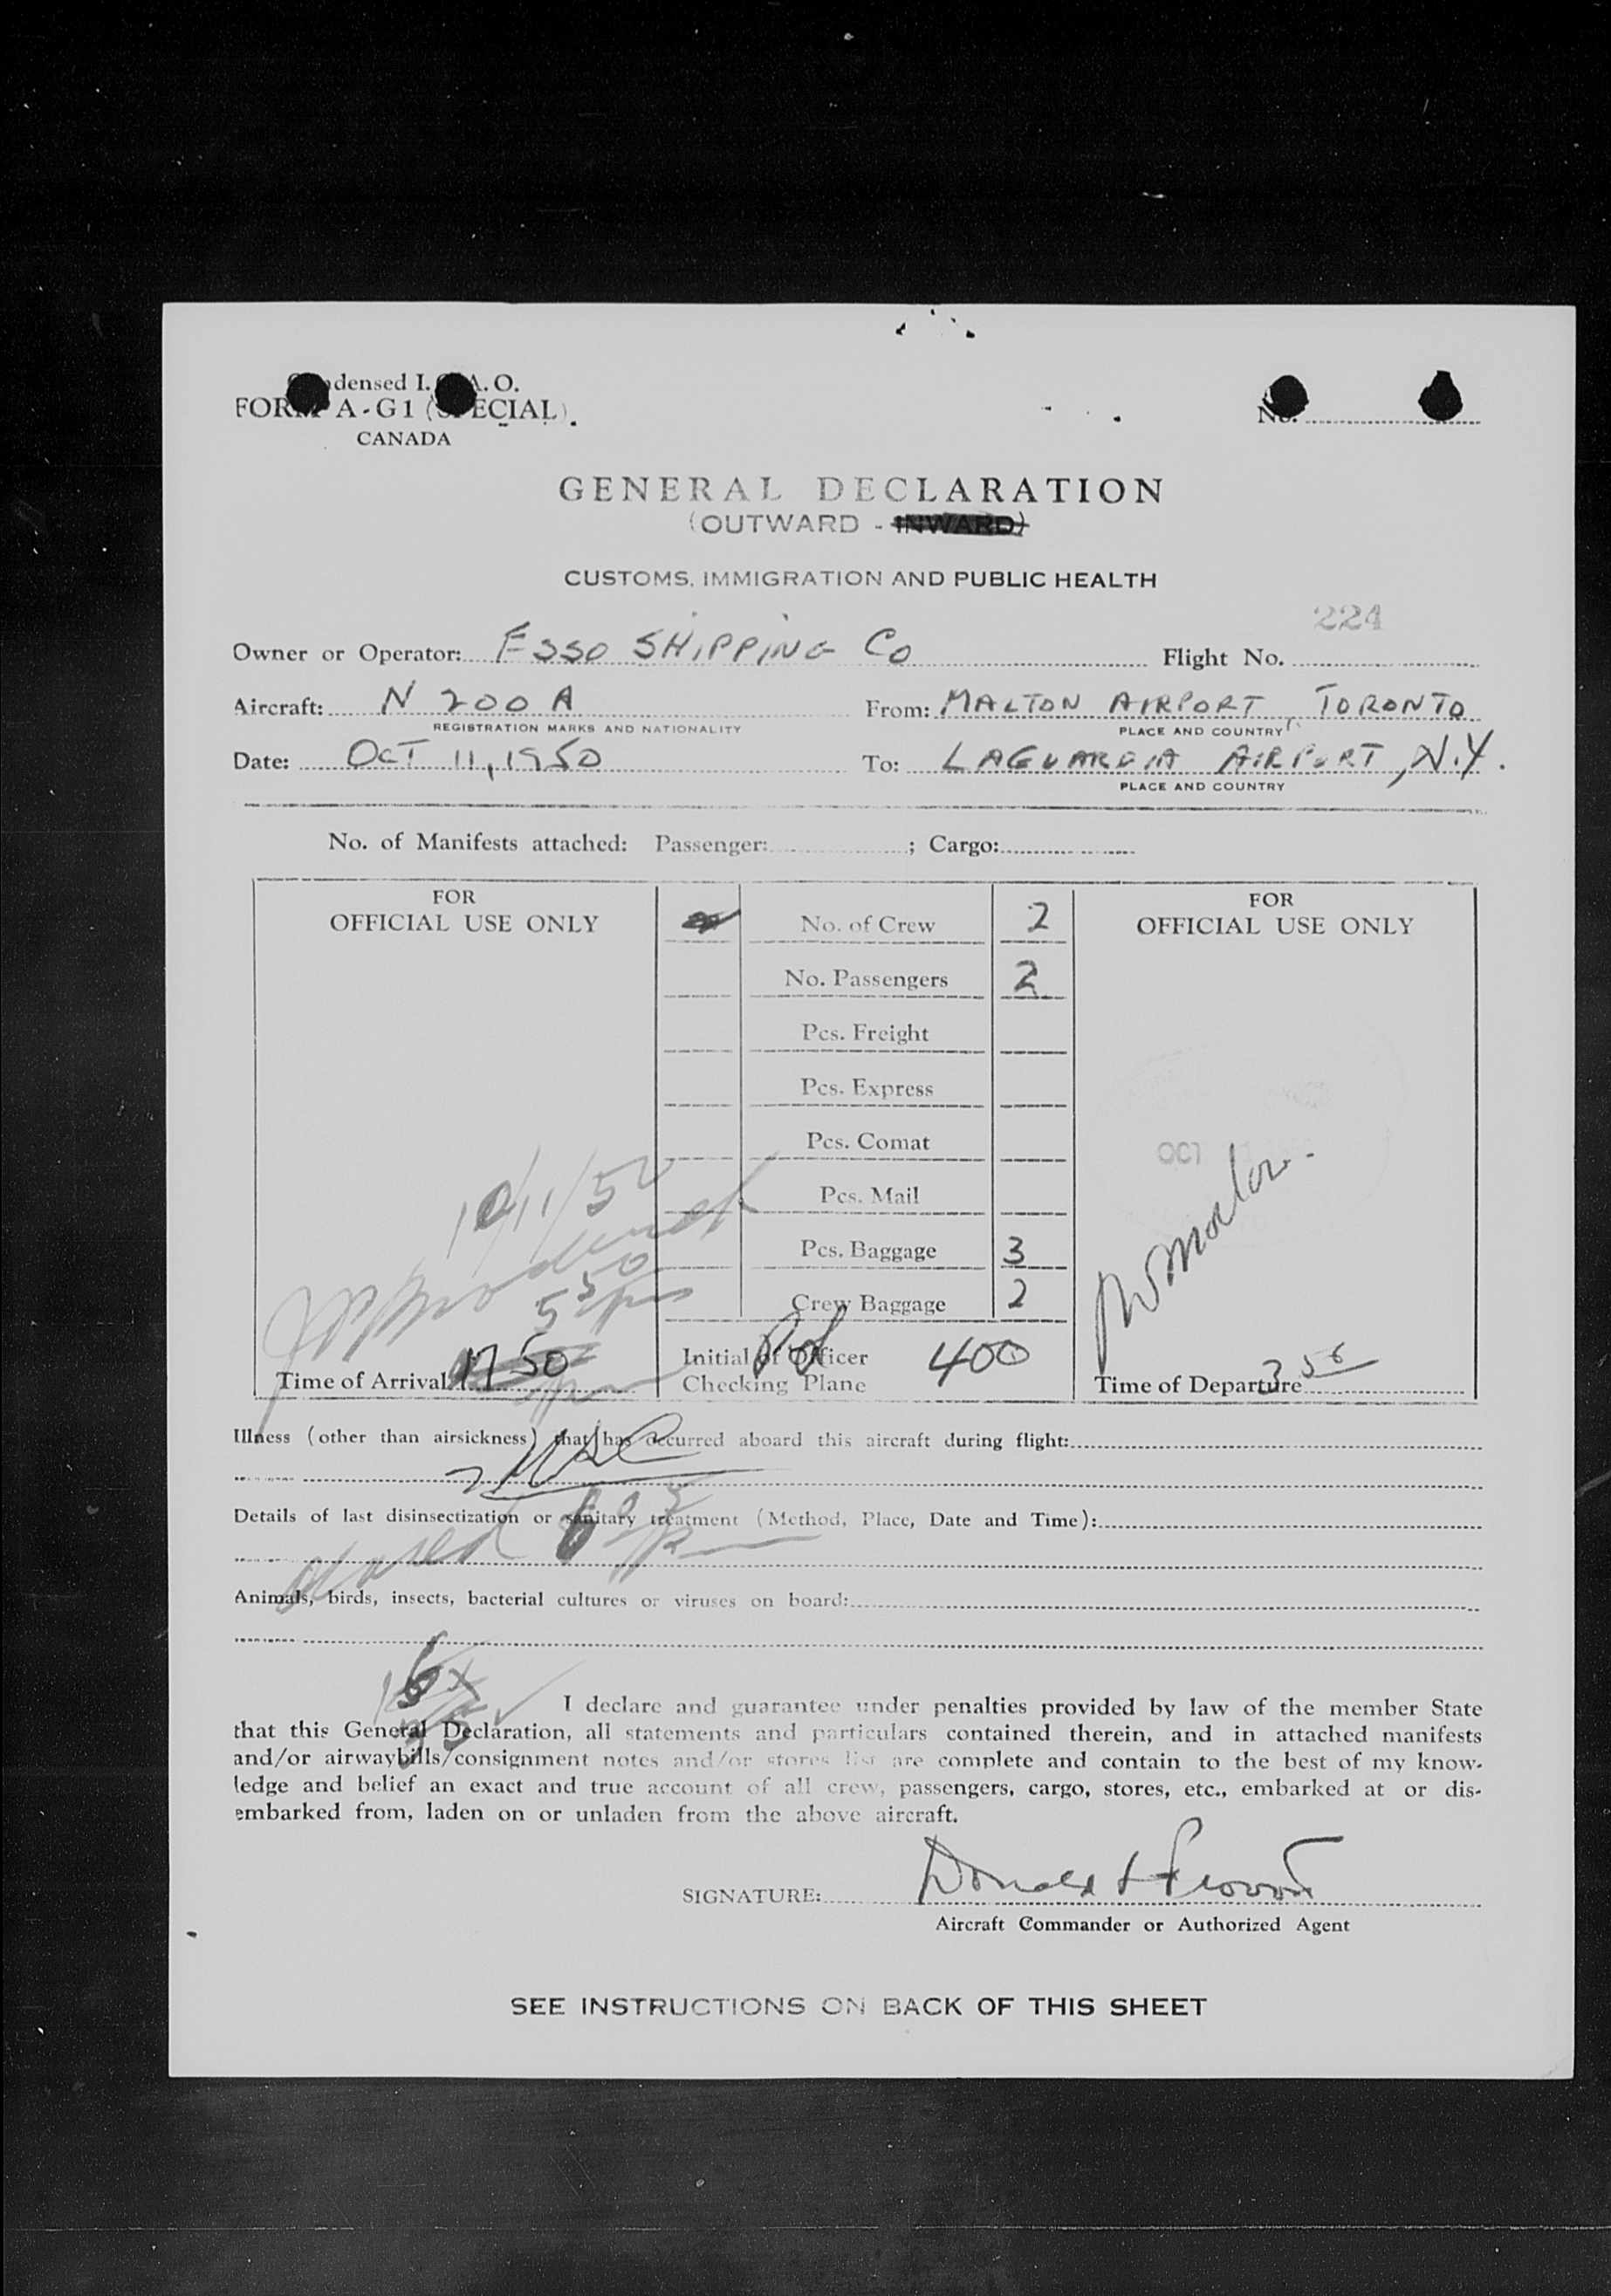 Condensed I.C.A.O.
FORM A-G1 (SPECIAL)
CANADA
No.
GENERAL DECLARATION
(OUTWARD - INWARD)
CUSTOMS, IMMIGRATION AND PUBLIC HEALTH
224
Owner or Operator: ESSO SHIPPING CO Flight No.
Aircraft: N 200 A From: MALTON AIRPORT, TORONTO
REGISTRATION MARKS AND NATIONALITY PLACE AND COUNTRY
Date: OCT 11, 1950 To: LAGUARDIA AIRPORT, N.Y.
PLACE AND COUNTRY
No. of Manifests attached: Passenger: ; Cargo:
FOR
OFFICIAL USE ONLY
No. of Crew 2
No. Passengers 2
Pcs. Freight
Pcs. Express
Pcs. Comat
Pcs. Mail
Pcs. Baggage 3
Crew Baggage 2
FOR
OFFICIAL USE ONLY
OCT
10/11/50
550 pm
Time of Arrival 1750
Initial of Officer
Checking Plane 400
Time of Departure 3 56
Illness (other than airsickness) that has occurred aboard this aircraft during flight:
Details of last disinsectization or sanitary treatment (Method, Place, Date and Time):
Animals, birds, insects, bacterial cultures or viruses on board:
I declare and guarantee under penalties provided by law of the member State
that this General Declaration, all statements and particulars contained therein, and in attached manifests
and/or airwaybills/consignment notes and/or stores list are complete and contain to the best of my know-
ledge and belief an exact and true account of all crew, passengers, cargo, stores, etc., embarked at or dis-
embarked from, laden on or unladen from the above aircraft.
SIGNATURE: Donald
Aircraft Commander or Authorized Agent
SEE INSTRUCTIONS ON BACK OF THIS SHEET